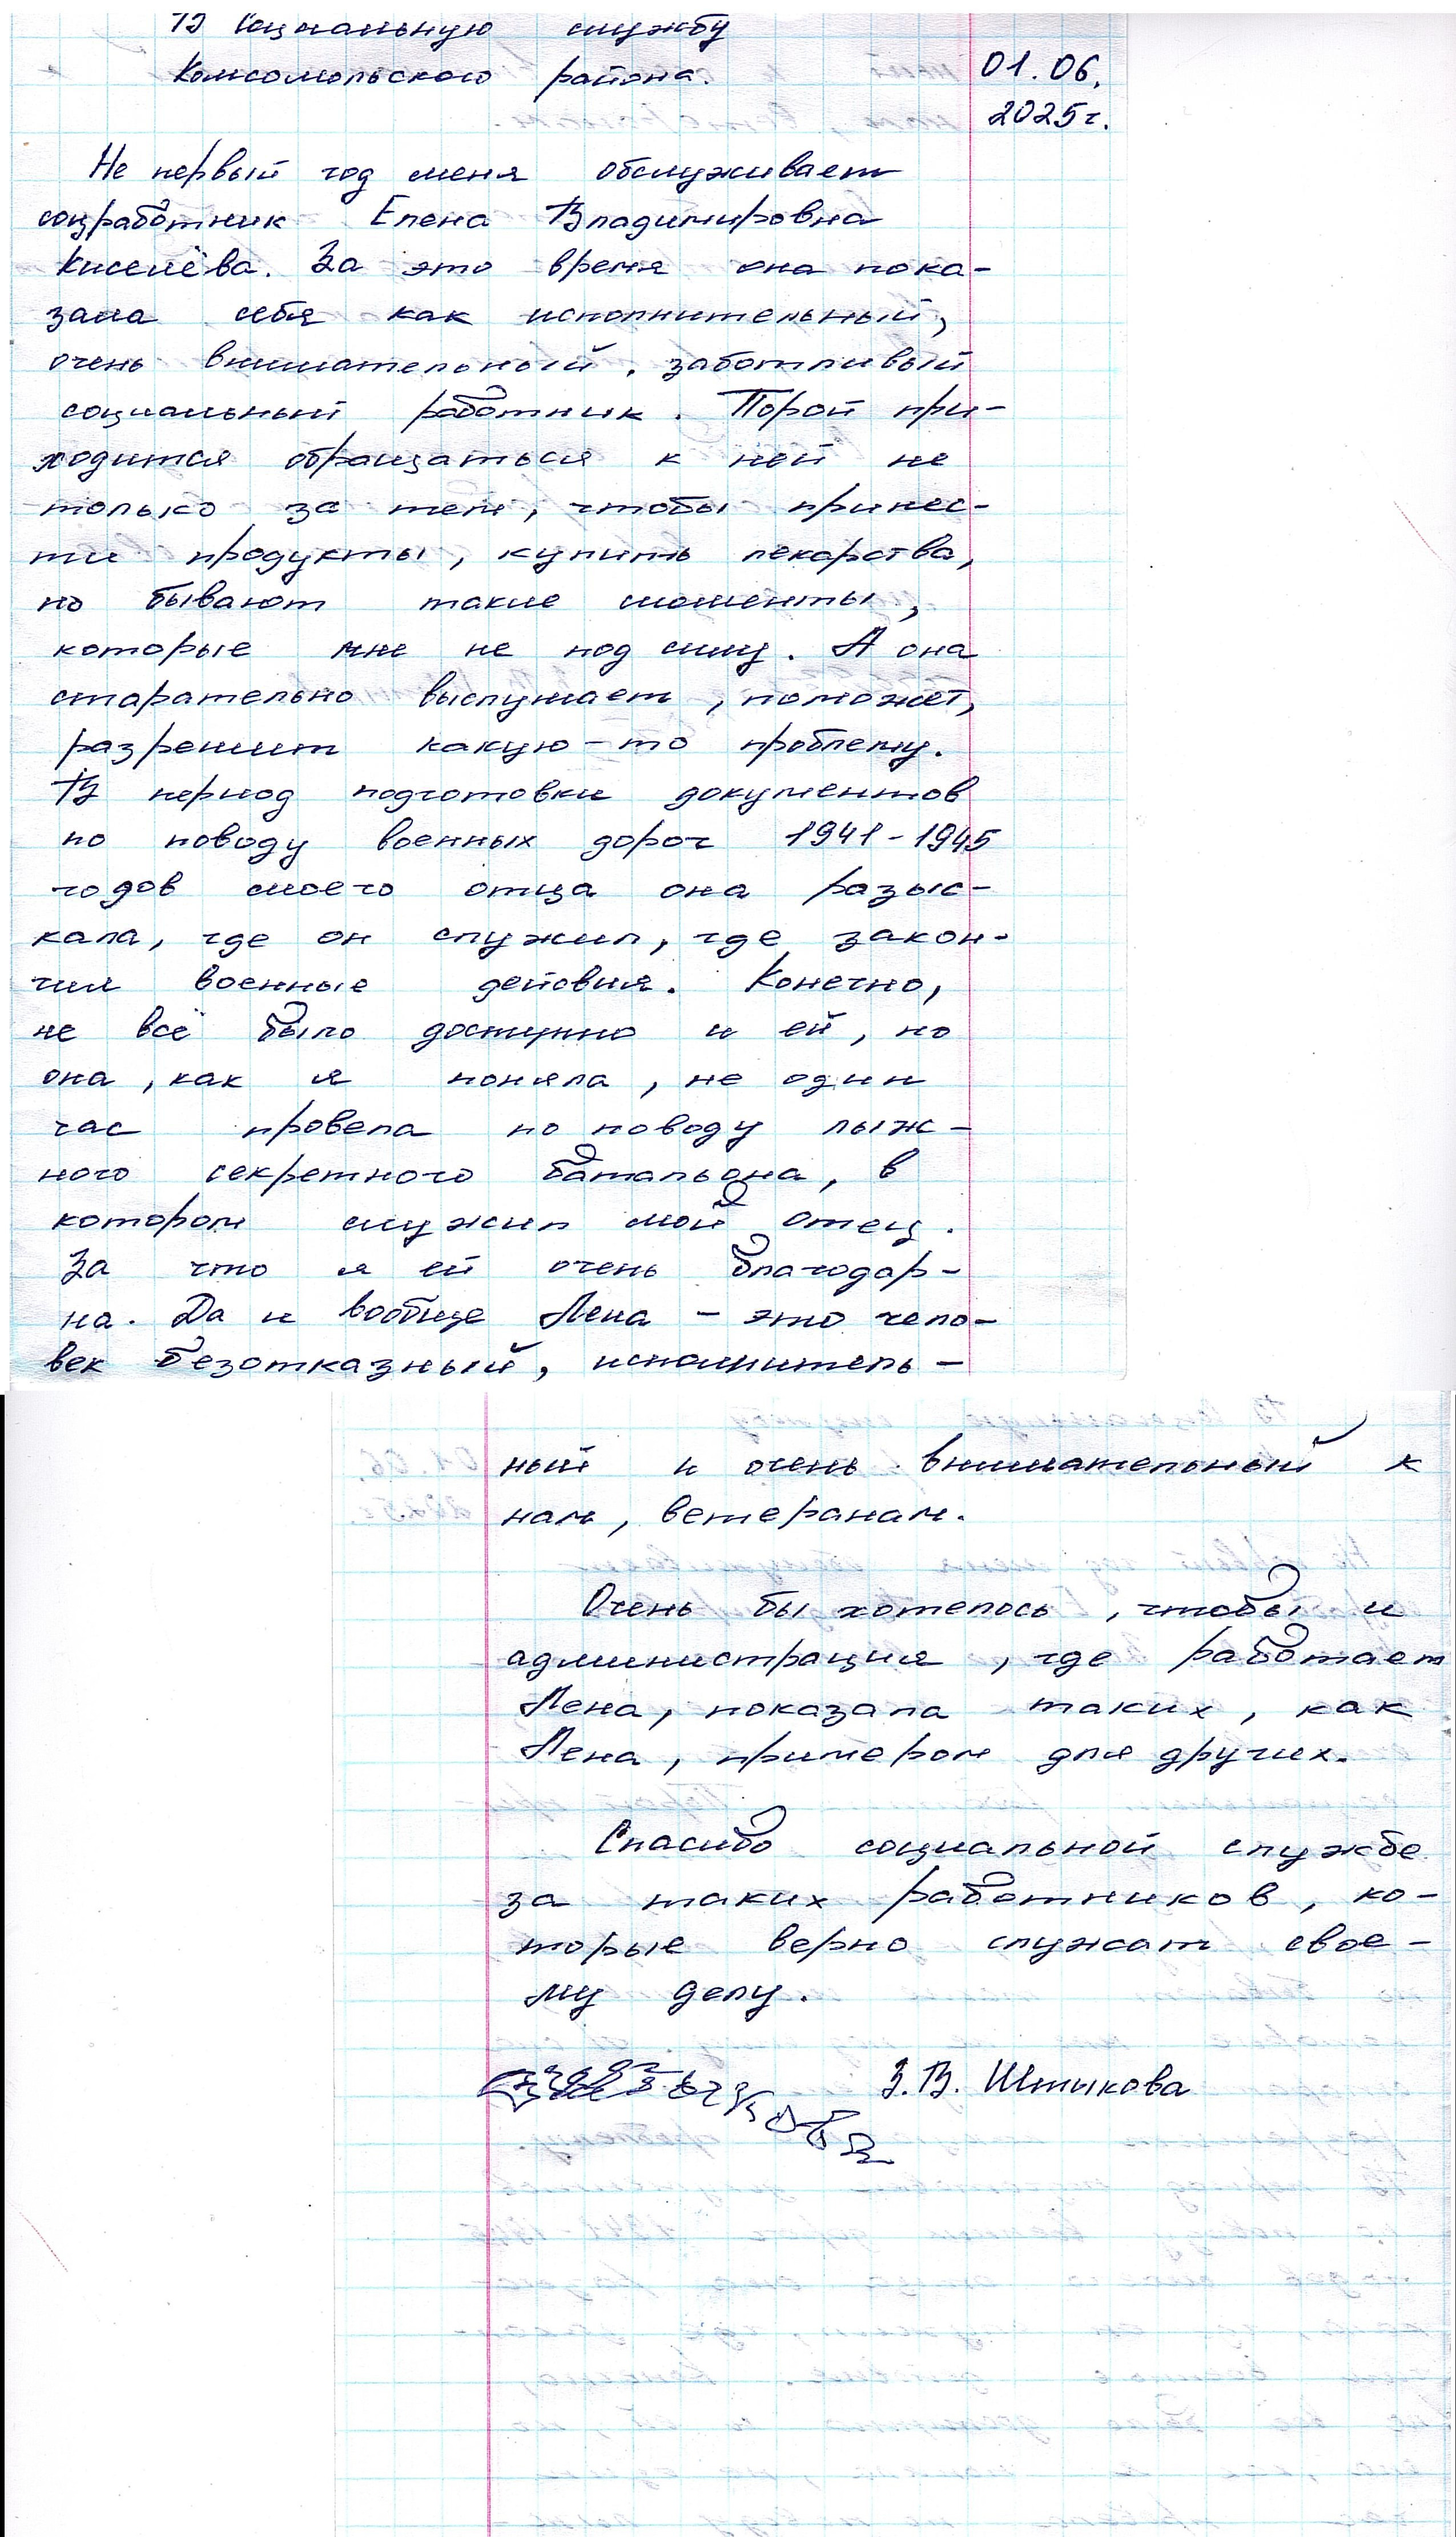 В социальную службу
Комсомольского района.
01.06.
2025г.
Не первый год меня обслуживает
соцработник Елена Владимировна
Киселёва. За это время она пока-
зала себя как исполнительный,
очень внимательный, заботливый
социальный работник. Порой при-
ходится обращаться к ней не
только за тем, чтобы принес-
ти продукты, купить лекарства,
но бывают такие моменты,
которые мне не под силу. А она
старательно выслушает, поможет,
разрешит какую-то проблему.
В период подготовки документов
по поводу военных дорог 1941-1945
годов моего отца она разыс-
кала, где он служил, где закон-
чил военные дейсвия. Конечно,
не всё было доступно и ей, но
она, как я поняла, не один
час провела по поводу лыж-
ного секретного батальона, в
котором служил мой отец.
За что я ей очень благодар-
на. Да и вообще Лена - это чело-
век безотказный, исполнитель-
ный и очень внимательный к
нам, ветеранам.
Очень бы хотелось, чтобы и
администрация, где работает
Лена, показала таких, как
Лена, примером для других.
Спасибо социальной службе
за таких работников, ко-
торые верно служат свое-
му делу.
З.В. Штыкова